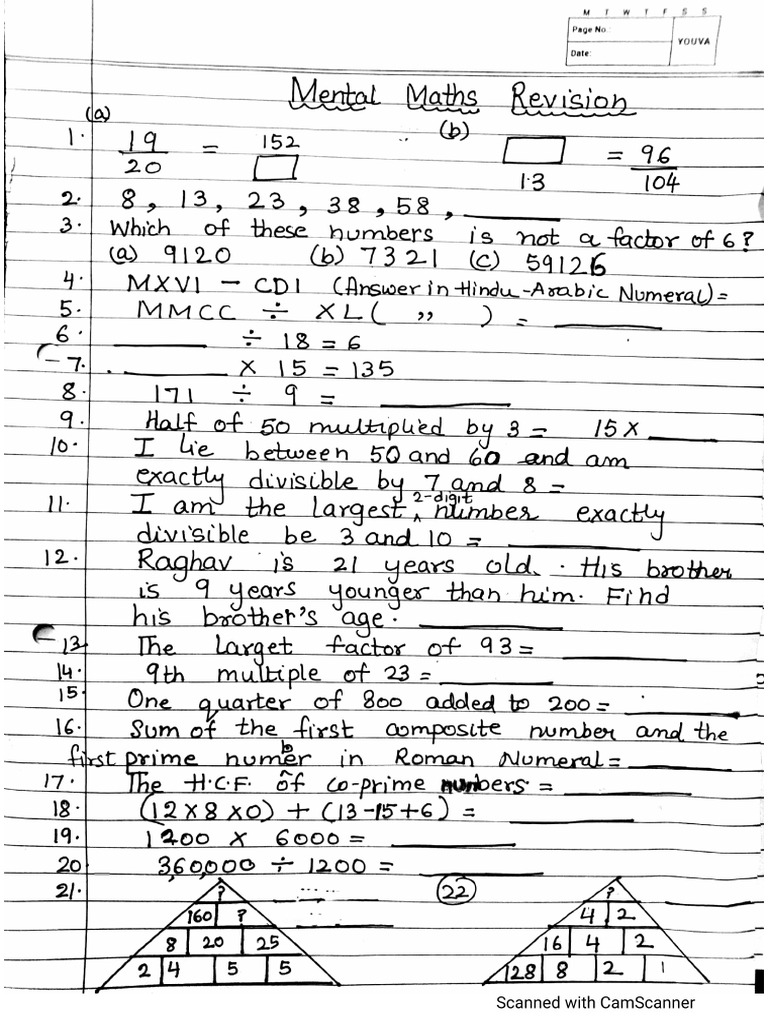 M T W T F S S
Page No.:
YOUVA
Date:
Mental Maths Revision
1. (a) 19/20 = 152/□ (b) □/13 = 96/104
2. 8, 13, 23, 38, 58, ______
3. Which of these numbers is not a factor of 6?
(a) 9120 (b) 7321 (c) 59126
4. MXVI - CDI (Answer in Hindu-Arabic Numeral) =
5. MMCC ÷ XL ( ,, ) = ______
6. ______ ÷ 18 = 6
7. ______ × 15 = 135
8. 171 ÷ 9 = ______
9. Half of 50 multiplied by 3 = 15 × ______
10. I lie between 50 and 60 and am
exactly divisible by 7 and 8 =
11. I am the largest 2-digit number exactly
divisible be 3 and 10 = ______
12. Raghav is 21 years old. His brother
is 9 years younger than him. Find
his brother's age. ______
13. The larget factor of 93 = ______
14. 9th multiple of 23 = ______
15. One quarter of 800 added to 200 = ______
16. Sum of the first composite number and the
first prime number in Roman Numeral = ______
17. The H.C.F. of co-prime numbers = ______
18. (12 × 8 × 0) + (13 - 15 + 6) = ______
19. 1200 × 6000 = ______
20 360,000 ÷ 1200 = ______
21. (22)
? ?
160 ? 4 2
8 20 25 16 4 2
2 4 5 5 128 8 2 1
Scanned with CamScanner